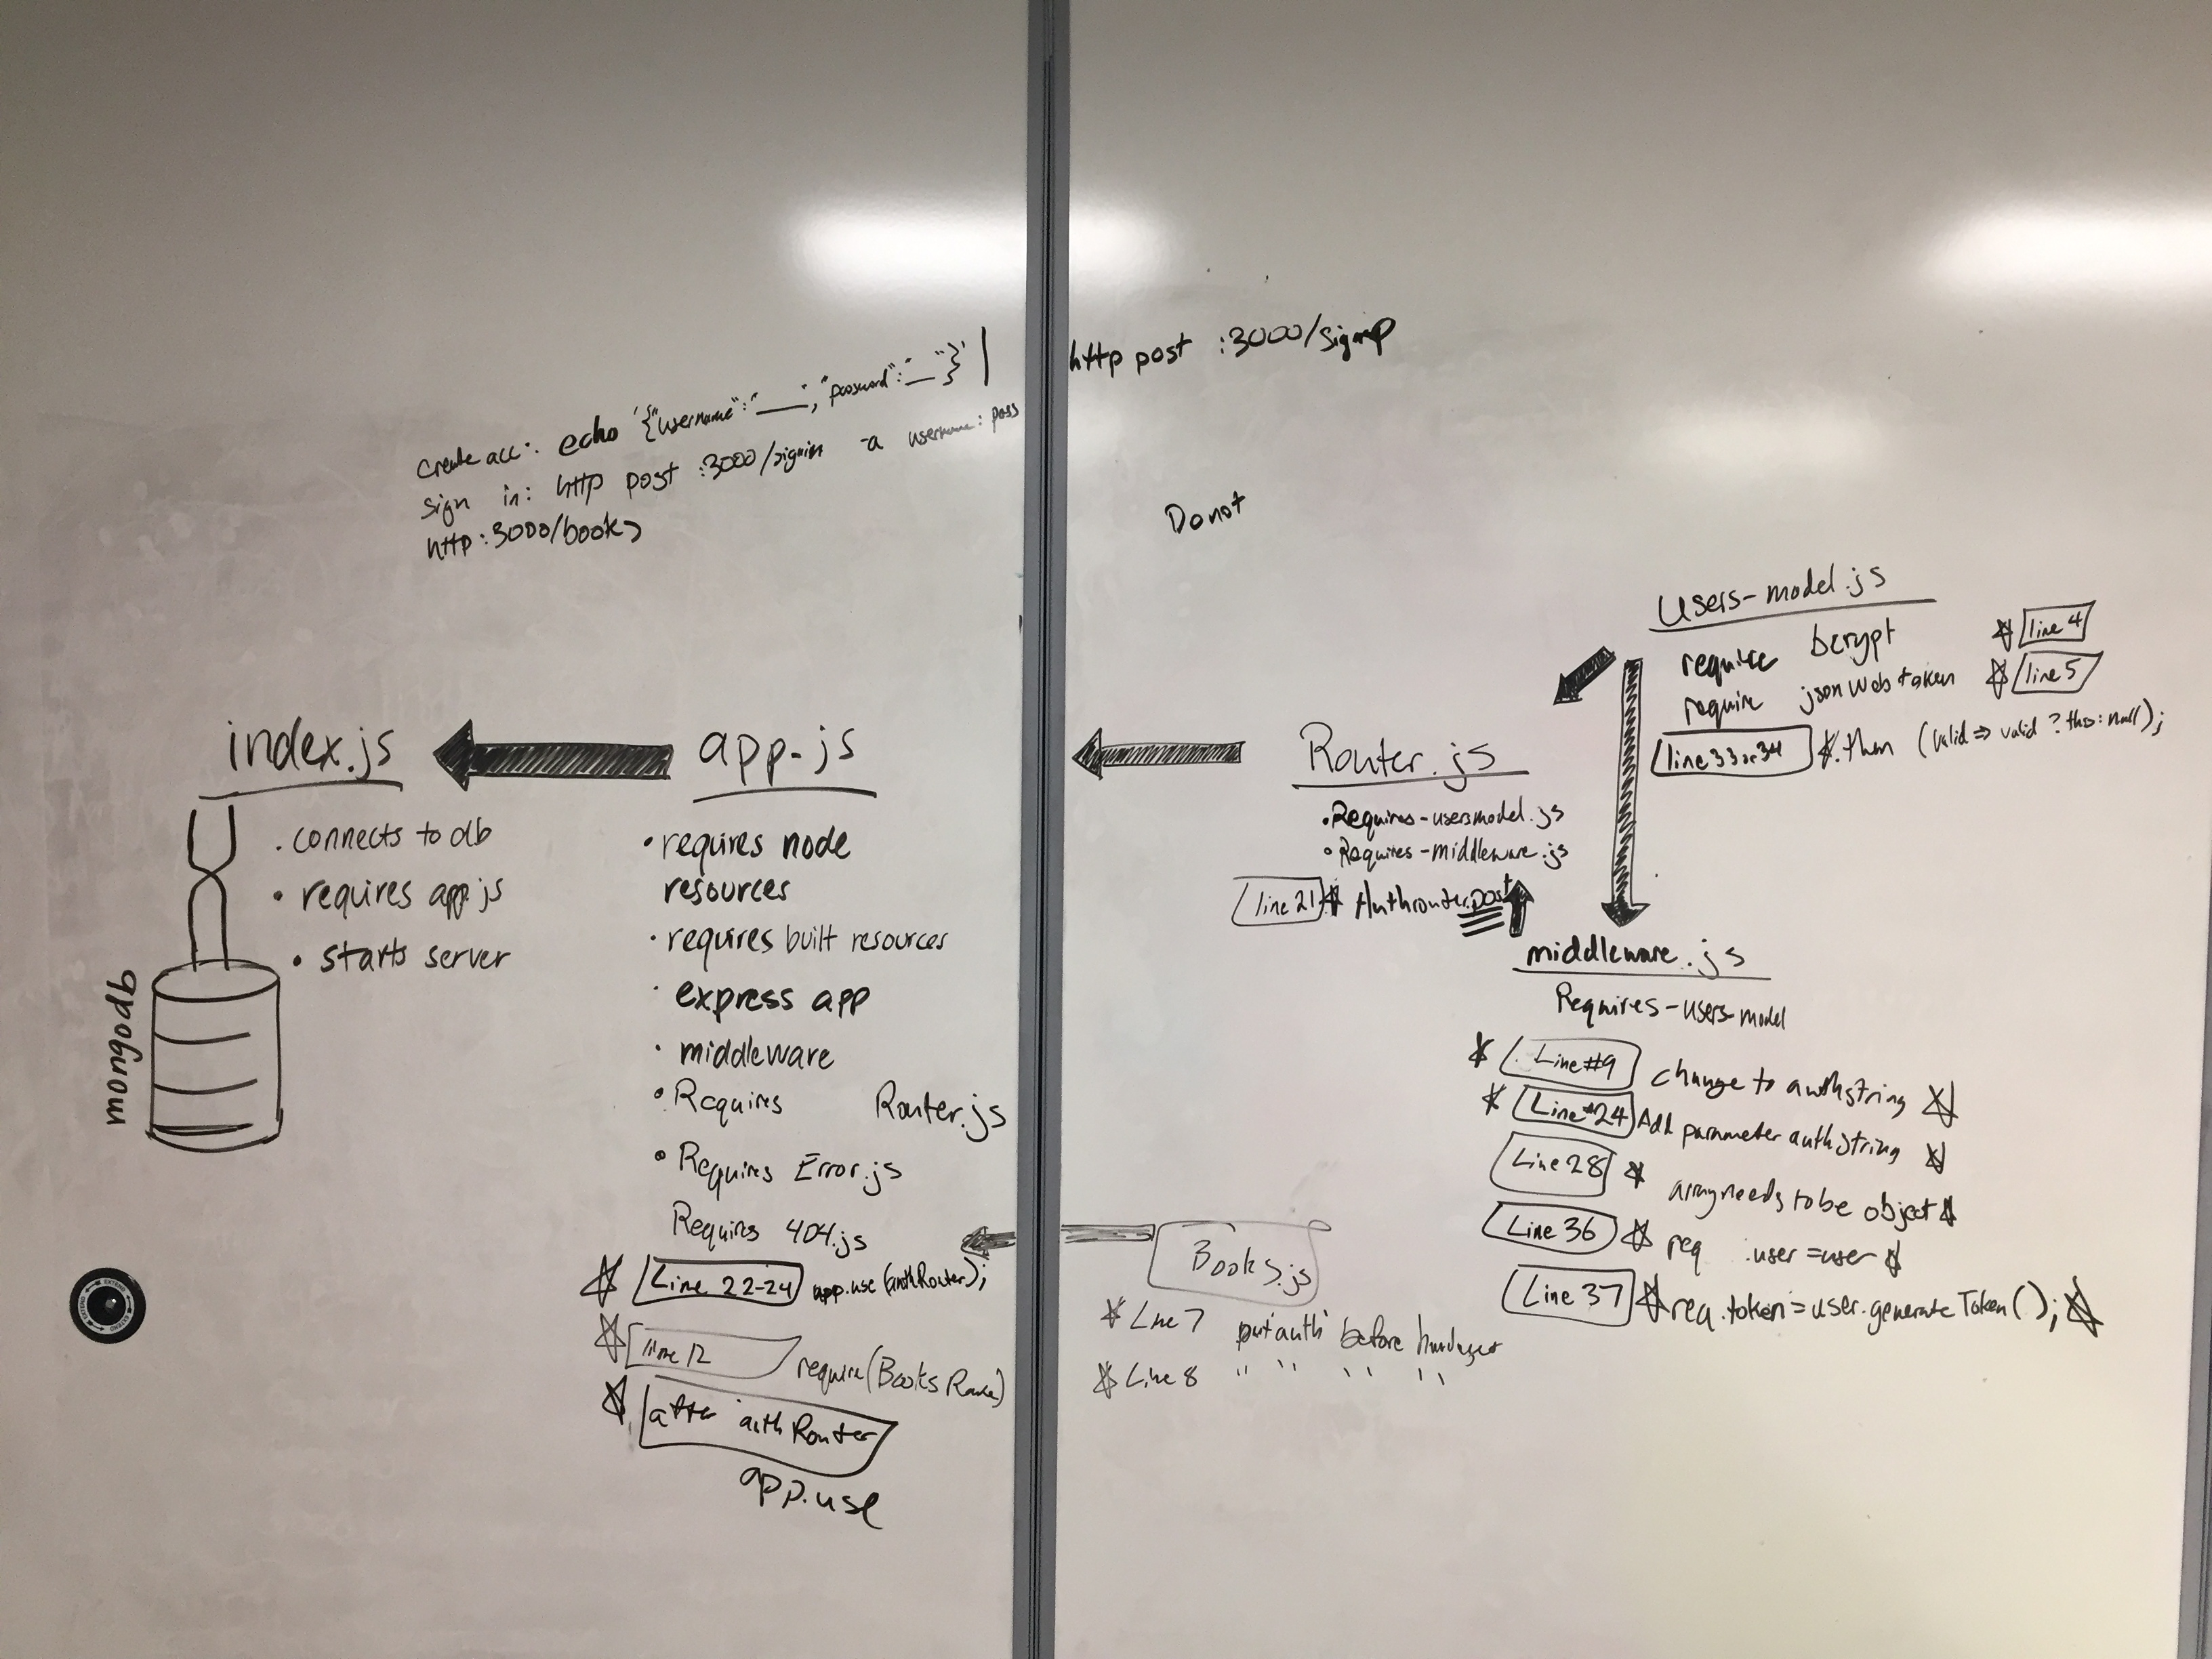 create acc: echo '{"username":"___", "password":"__"}' | http post :3000/signup
sign in: http post :3000/signin -a username:pass
http :3000/books
Do not
index.js
. connects to db
• requires app.js
• starts server
mongodb
app.js
• requires node
resources
• requires built resources
• express app
• middleware
• Requires Router.js
• Requires Error.js
Requires 404.js
Line 22-24 app.use(authRouter);
line 12 require(Books Route)
after authRouter
app.use
Router.js
• Requires - usersmodel.js
• Requires - middleware.js
line 21 Authrouter.post
Books.js
Line 7 put 'auth' before handager
Line 8 " " " "
Users-model.js
require bcrypt line 4
require jsonWebtoken line 5
line 33 or 34 .then (valid => valid ? this : null);
middleware.js
Requires - users-model
Line #9 change to authstring
Line #24 Add parameter authstring
Line 28 array needs to be object
Line 36 req .user = user
Line 37 req.token = user.generateToken();
EXTEND
EXTEND